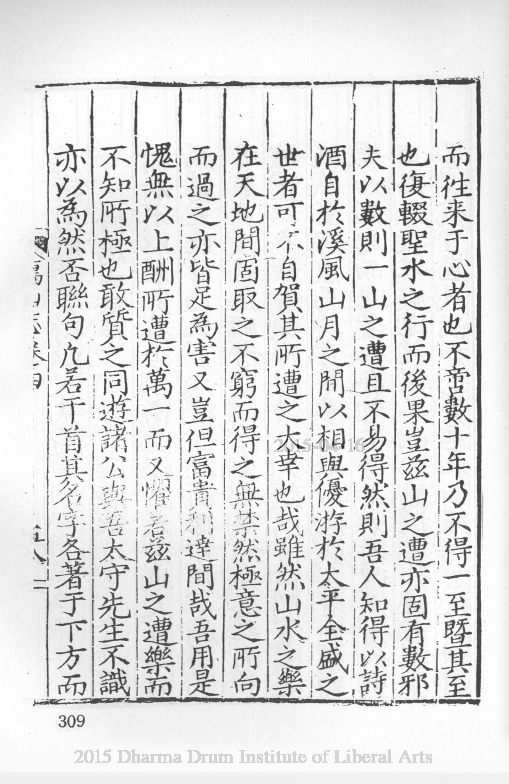 而徃来于心者也不啻數十年乃不得一至暨其至
也復輟聖水之行而後果豈兹山之遭亦固有數邪
夫以數則一山之遭且不易得然則吾人知得以詩
酒自於溪風山月之間以相與優游於太平全盛之
世者可不自賀其所遭之大幸也哉雖然山水之樂
在天地間固取之不窮而得之無禁然極意之所向
而過之亦皆足為害又豈但富貴利達間哉吾用是
愧無以上酬所遭於萬一而又懼若兹山之遭樂而
不知所極也敢質之同遊諸公與吾太守先生不識
亦以為然否聯句凡若干首其名字各著于下方而
山志卷四
309
2015 Dharma Drum Institute of Liberal Arts